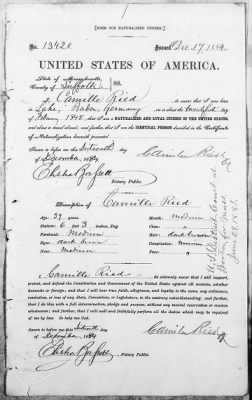 [FORM FOR NATURALIZED CITIZEN.]
No. 13420 Issued Dec. 17, 1884.
UNITED STATES OF AMERICA.
State of Massachusetts
County of Suffolk } ss.
I, Camille Ried, do swear that I was born in
Baden, Germany, on or about the
day of
February, 1845, that I am a NATURALIZED AND LOYAL CITIZEN OF THE UNITED STATES,
and about to travel abroad; and further, that I am the IDENTICAL PERSON described in the Certificate
of Naturalization herewith presented.
Sworn to before me this Sixteenth
day of December, 1884
Camille Ried
Notary Public.
Description of Camille Ried
Age: 39 years. Mouth: Medium
Stature: 6 feet 3 inches, Eng. Chin:
Forehead: Medium Hair: dark brown
Eyes: dark brown Complexion:
Nose: Medium Face:
I, Camille Ried, do solemnly swear that I will support,
defend the Constitution and Government of the United States against all enemies, whether
domestic or foreign; and that I will bear true faith, allegiance, and loyalty to the same, any ordinance,
resolution, or law of any State, Convention, or Legislature, to the contrary notwithstanding; and further,
that I do this with a full determination, pledge, and purpose, without any mental reservation or evasion
whatsoever; and further, that I will well and faithfully perform all the duties which may be required of
me by law. So help me God.
Sworn to before me this Sixteenth
day of December, 1884
Camille Ried
Notary Public.